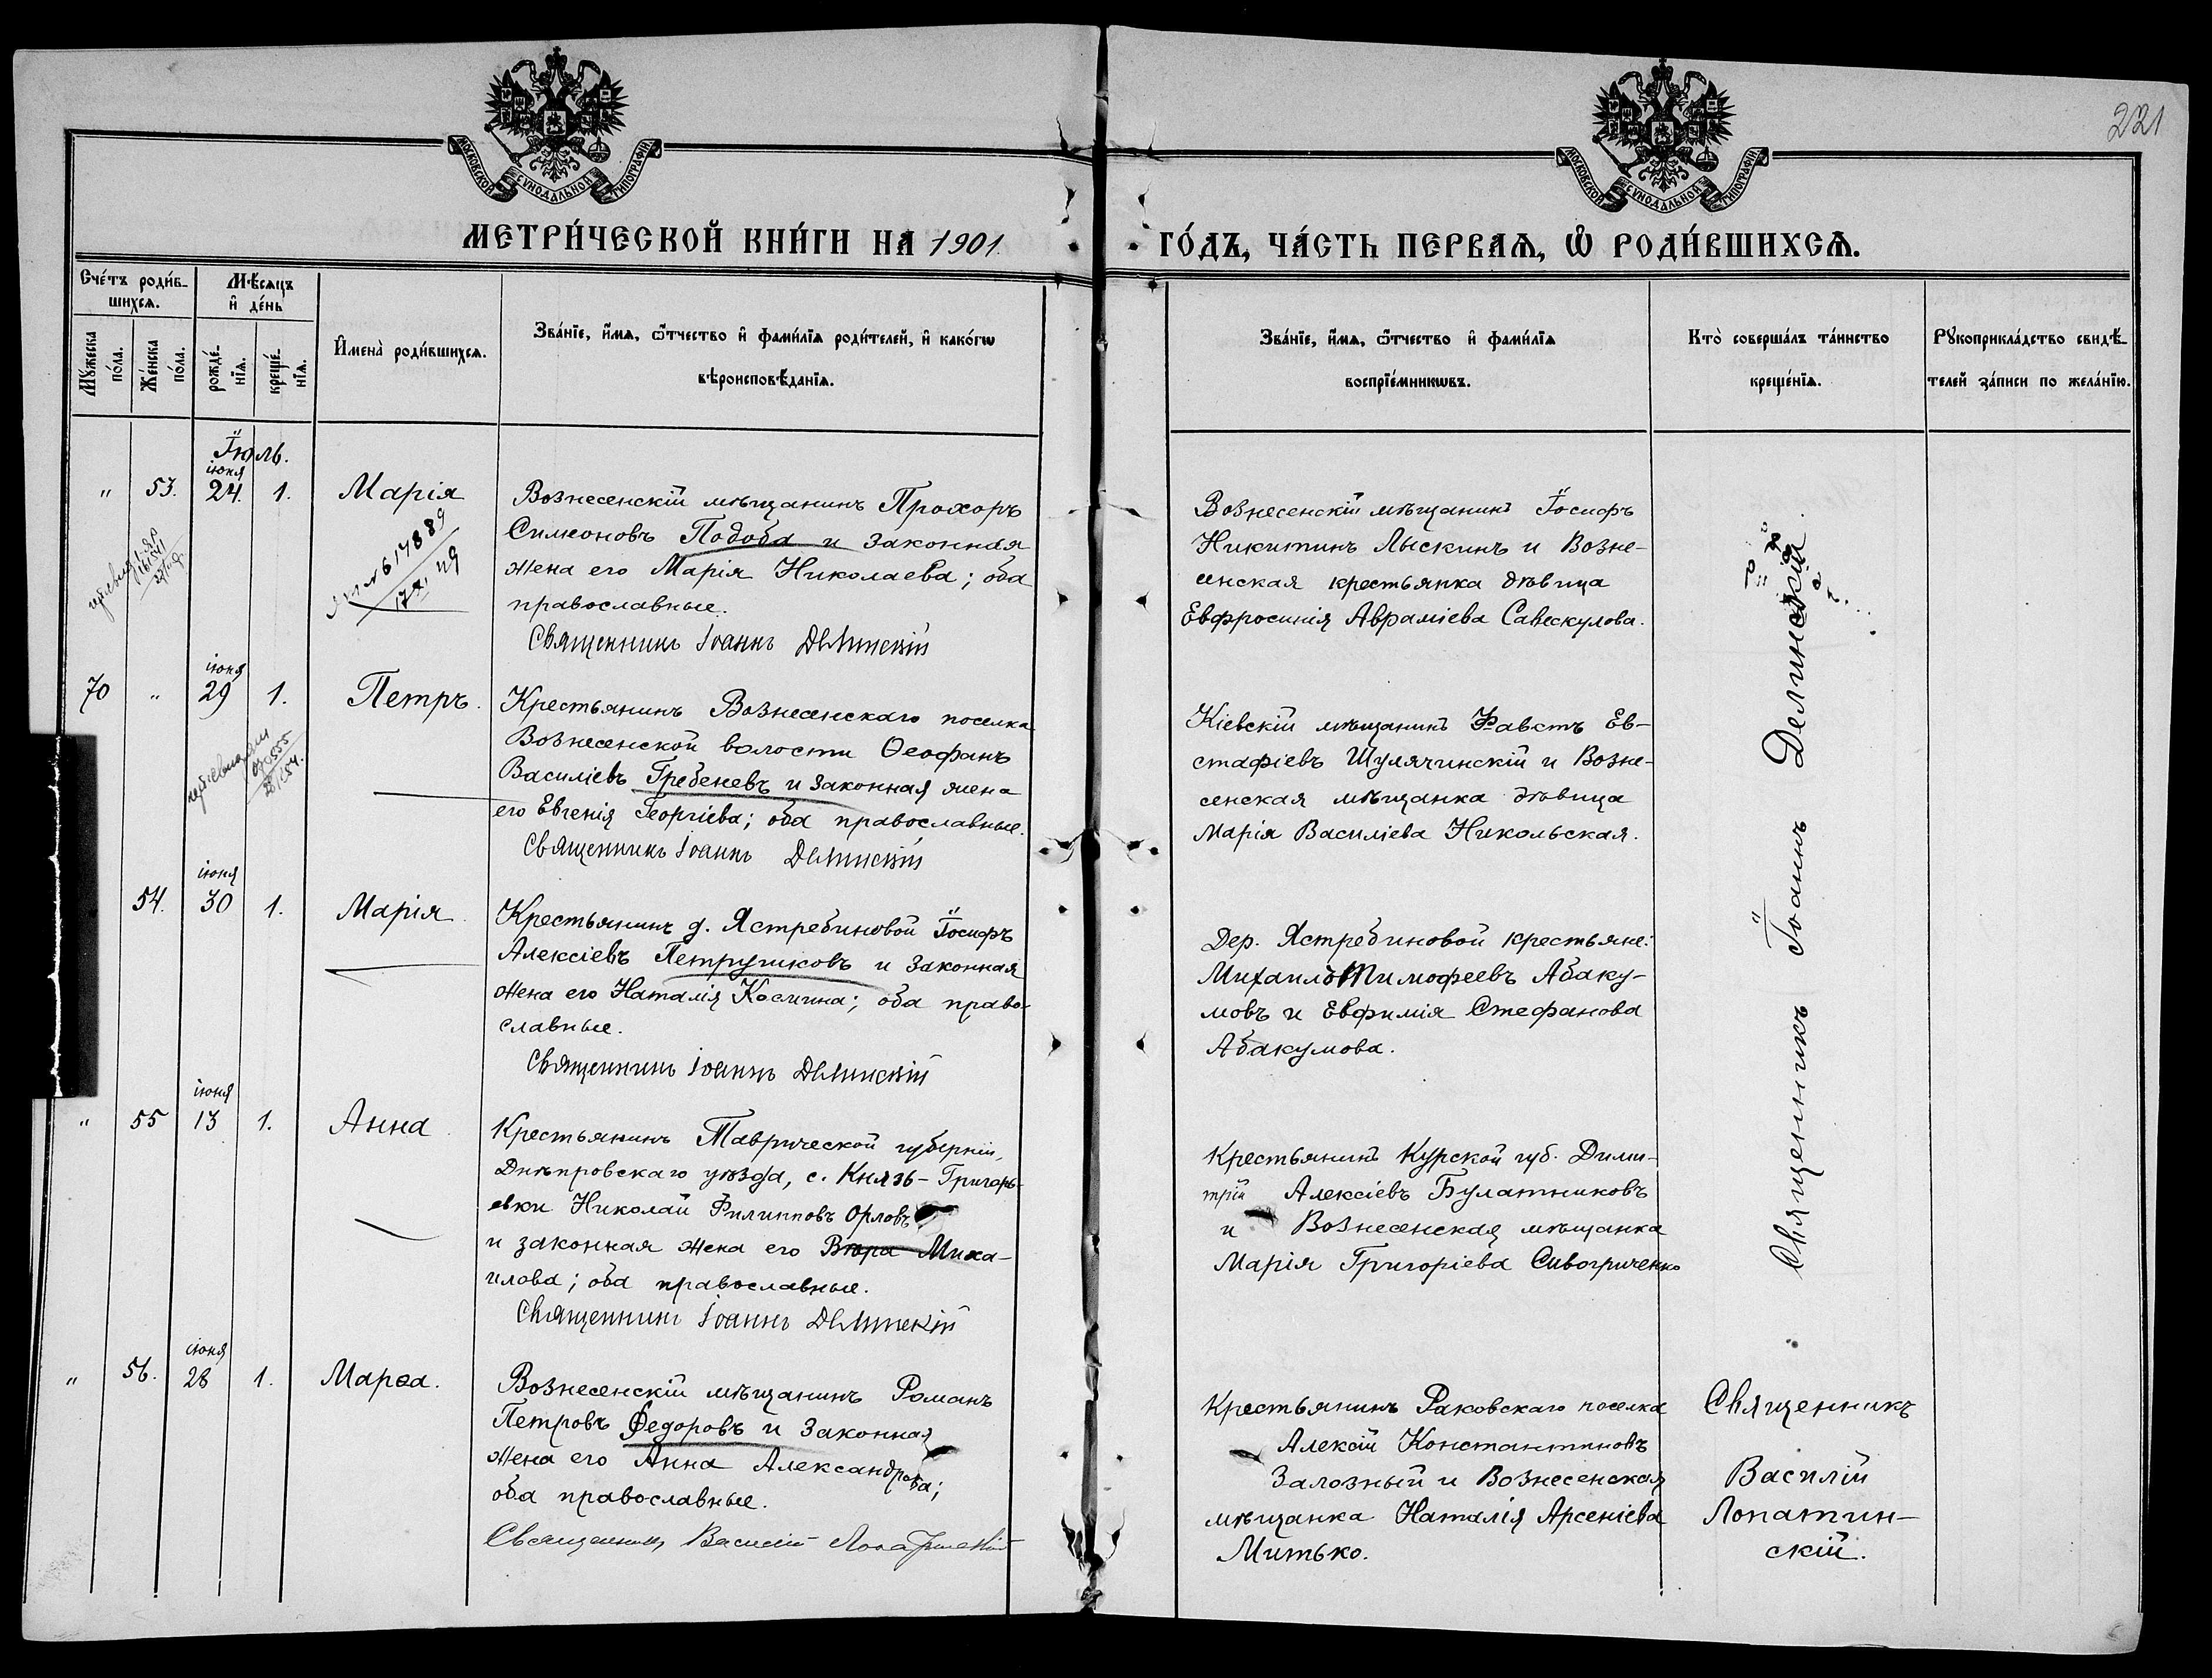 221
МОСКОВСКОЙ СѴНОДАЛЬНОЙ ТИПОГРАФІИ
МОСКОВСКОЙ СѴНОДАЛЬНОЙ ТИПОГРАФІИ
МЕТРИ́ЧЕСКОЙ КНИ́ГИ НА 1901. ГО́ДЪ, ЧА́СТЬ ПЕРВАѦ, Ѡ РОДИ́ВШИХСѦ.
Сче́тъ роди́в-
шихсѧ.
Мѣ́сѧцъ
и҆ де́нь
Мꙋ́жеска
по́ла.
Же́нска
по́ла.
рожде́-
нїѧ.
креще́-
нїѧ.
И҆мена̀ роди́вшихсѧ.
Зва́нїе, и҆́мѧ, ѻ҆́тчество и҆ фами́лїѧ роди́телей, и҆ како́гѡ
вѣроисповѣ́данїѧ.
Зва́нїе, и҆́мѧ, ѻ҆́тчество и҆ фами́лїѧ
воспрїе́мникѡвъ.
Кто̀ соверша́лъ та́инство
креще́нїѧ.
Рꙋкоприкла́дство свидѣ́-
телей за́писи по жела́нїю.
Іюль.
іюня
" 53. 24. 1. Марія
Вознесенскій мѣщанинъ Прохоръ
Симеоновъ Подоба и законная
жена его Марія Николаева; оба
православные.
Священникъ Іоаннъ Делинскій
Вознесенскій мѣщанинъ Іосифъ
Никитинъ Лыскинъ и Возне-
сенская крестьянка дѣвица
Евфросинія Авраміева Савескулова.
іюня
70 " 29 1. Петръ.
Крестьянинъ Вознесенскаго поселка
Вознесенской волости Ѳеофанъ
Василіевъ Гребеневъ и законная жена
его Евгенія Георгіева; оба православные.
Священникъ Іоаннъ Делинскій
Кіевскій мѣщанинъ Фавстъ Ев-
стафіевъ Шулячинскій и Возне-
сенская мѣщанка дѣвица
Марія Василіева Никольская.
іюня
54. 30 1. Марія
Крестьянинъ д. Ястребиновой Іосифъ
Алексіевъ Петрушковъ и законная
жена его Наталія Космина; оба право-
славные.
Священникъ Іоаннъ Делинскій
Дер. Ястребиновой крестьяне:
Михаилъ Тимофеевъ Абаку-
мовъ и Евфимія Стефанова
Абакумова.
іюня
" 55 13 1. Анна
Крестьянинъ Таврической губерніи,
Днѣпровскаго уѣзда, с. Князь-Григорь-
евки Николай Филипповъ Орловъ
и законная жена его Вѣра Миха-
илова; оба православные.
Священникъ Іоаннъ Делинскій
Крестьянинъ Курской губ. Дими-
трій Алексіевъ Булатниковъ
и Вознесенская мѣщанка
Марія Григоріева Сивогриченко
Священникъ Іоаннъ Делинскій
іюня
" 56. 28 1. Марѳа.
Вознесенскій мѣщанинъ Романъ
Петровъ Федоровъ и законная
жена его Анна Александрова;
оба православные.
Священникъ Василій Лопатинскій
Крестьянинъ Раковскаго поселка
Алексій Константиновъ
Залозный и Вознесенская
мѣщанка Наталія Арсеніева
Митько.
Священникъ
Василій
Лопатин-
скій.